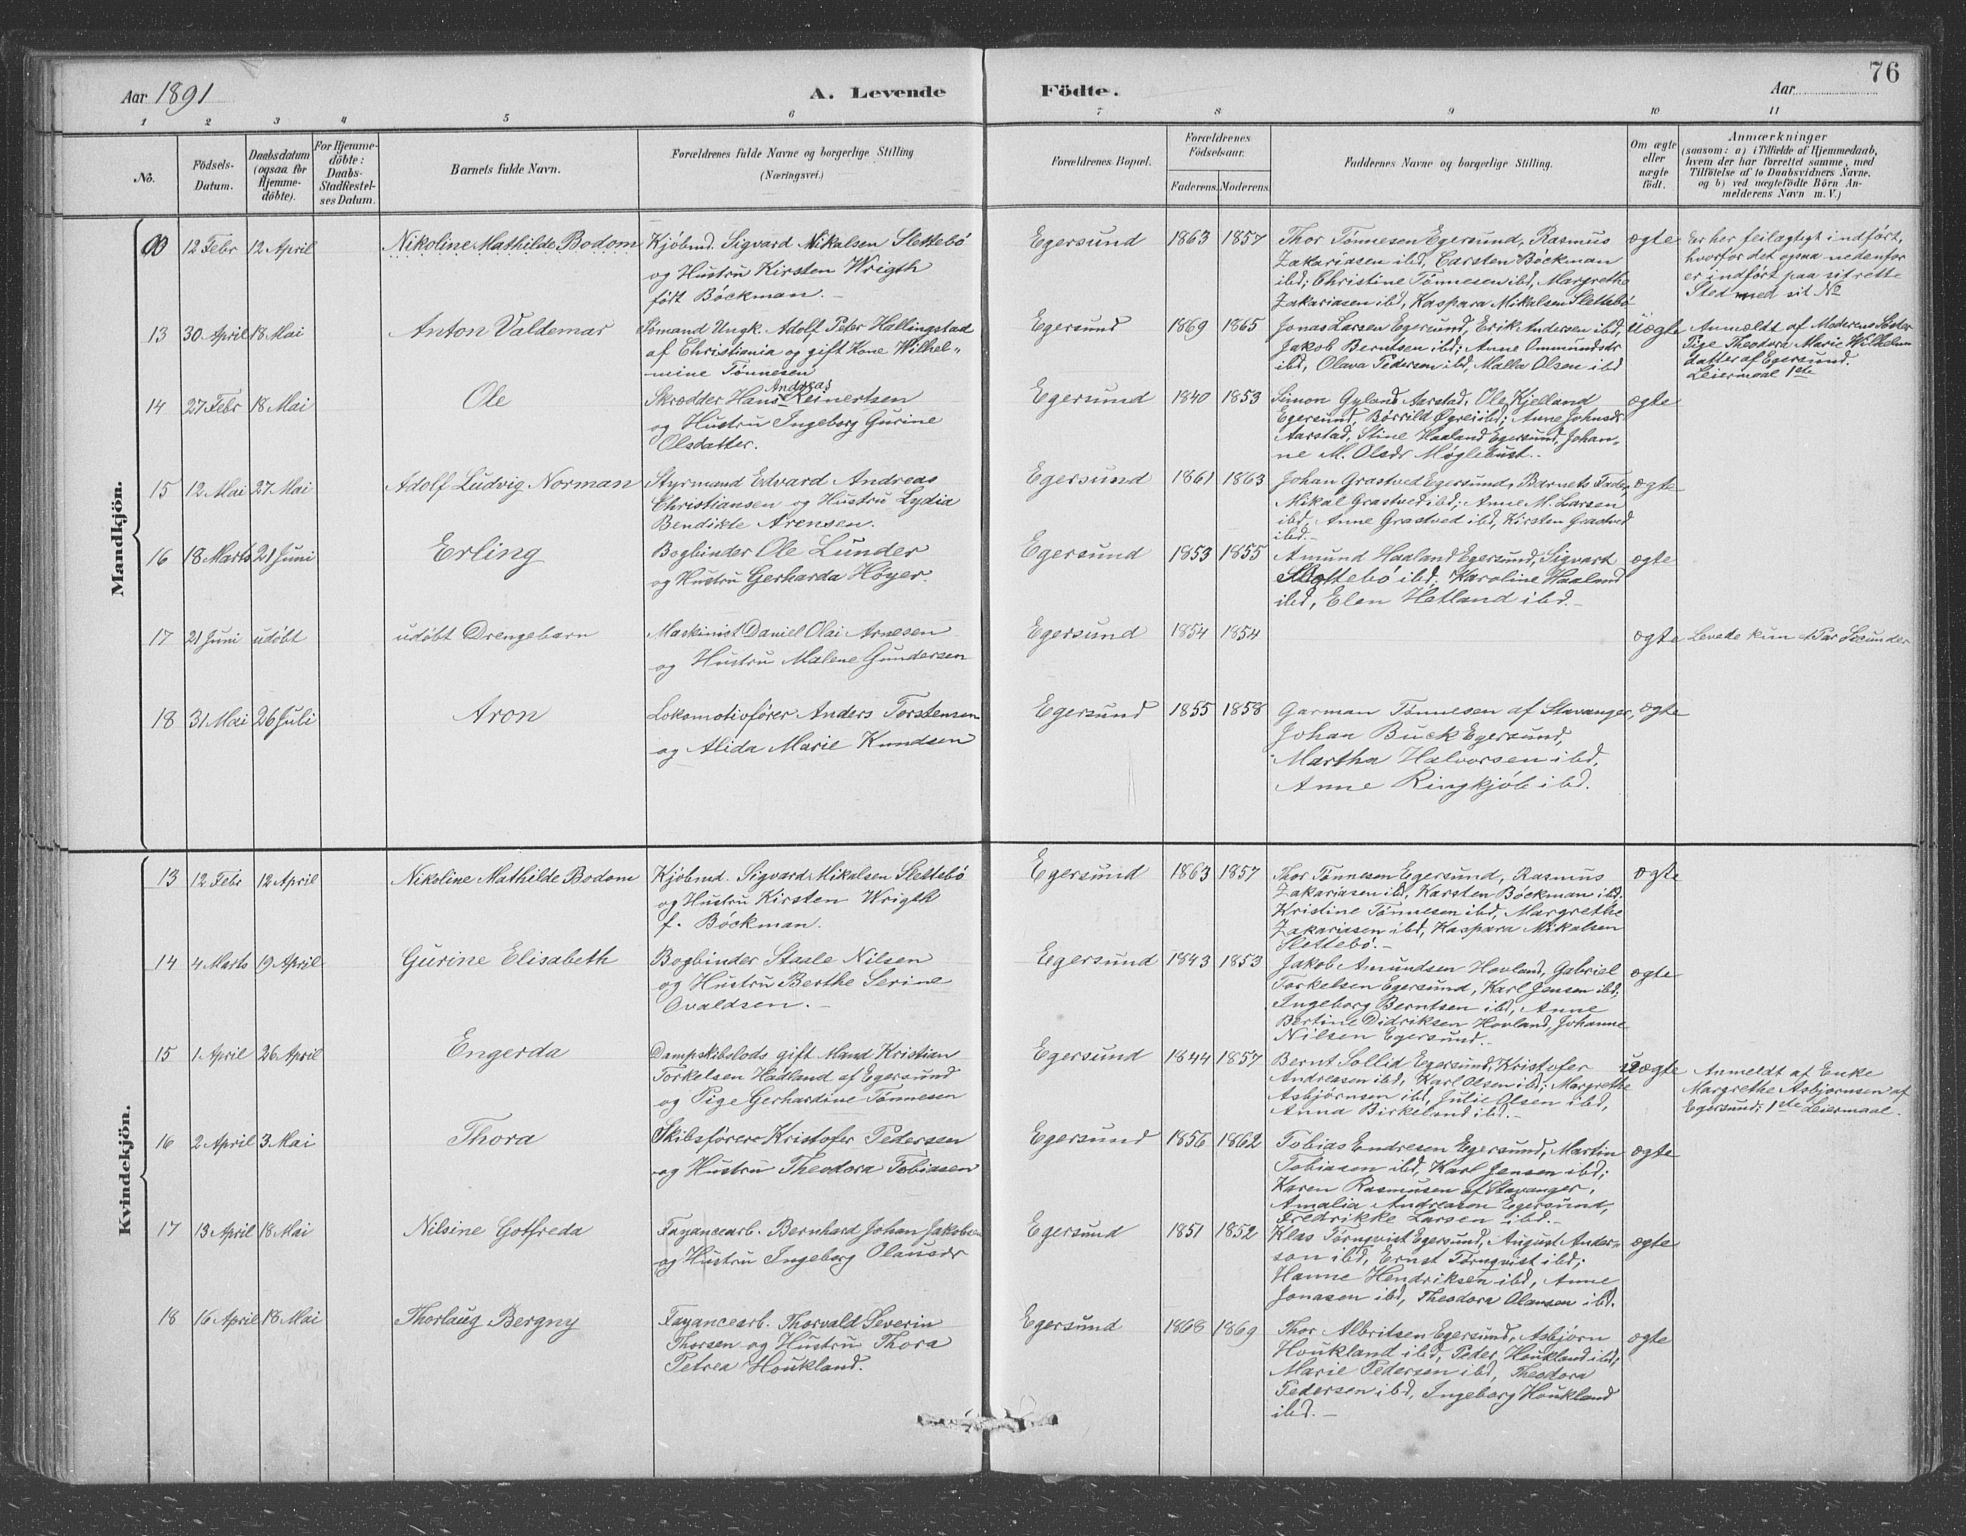 76
Aar 1891
A. Levende Födte.
Aar
1 2 3 4 5 6 7 8 9 10 11
No.
Födsels-
Datum.
Daabsdatum
(ogsaa for
Hjemme-
döbte).
For Hjemme-
döbte:
Daabs-
Stadfæstel-
ses Datum.
Barnets fulde Navn.
Forældrenes fulde Navne og borgerlige Stilling
(Næringsvei.)
Forældrenes Bopæl.
Forældrenes
Födselsaar.
Faderens. Moderens.
Faddernes Navne og borgerlige Stilling.
Om ægte
eller
uægte
födt.
Anmærkninger
(saasom: a) i Tilfælde af Hjemmedaab,
hvem der har forrettet samme, med
Tilföielse af to Daabsvidners Navne,
og b) ved uægtefödte Börn An-
melderens Navn m. V.)
Mandkjön.
12 Febr 12 April Nikoline Mathilde Bodom
Kjøbmd. Sigvard Nikalsen Slettebö
og Hustru Kirsten Wrigth
født Böckman. -
Egersund 1863 1857
Thor Tønnesen Egersund, Rasmus
Zakariasen ibd, Carsten Böckman
ibd; Christine Tønnesen ibd, Margrethe
Zakariasen ibd, Kaspara Mikalsen Slettebö
ægte
Er her feilagtigt indført,
hvorfor det ogsaa nedenfor
er indført paa sit rette
Sted med sit No
13 30 April 18 Mai Anton Valdemar
Sømand Ungk. Adolf Peter Hallingstad
af Christiania og gift Kone Wilhel-
mine Tønnesen
Egersund 1869 1865
Jonas Larsen Egersund, Erik Andersen ibd,
Jakob Berntsen ibd; Anne Ommundsdr
ibd, Olava Pedersen ibd, Malla Olsen ibd
uægte
Anmeldt af Moderens Søster
Pige Theodora Marie Wilhelms
datter af Egersund.
Leiermaal 1ste
14 27 Febr 18 Mai Ole
Skrædder Hans Andreas Reinertsen
og Hustru Ingeborg Gurine
Olsdatter.
Egersund 1840 1853
Simon Gyland Aarstad, Ole Kjelland
Egersund, Börrild Øgrei ibd; Anne Johnsdr
Aarstad, Stine Haaland Egersund, Johan-
ne M. Olsdr Møglebust.-
ægte
15 12 Mai 27 Mai Adolf Ludvig Norman
Styrmand Edvard Andreas
Christiansen og Hustru Lydia
Bendikte Arensen.
Egersund 1861 1863
Johan Grastved Egersund, Barnets Fader,
Mikal Grastved ibd; Anne M. Larsen
ibd, Anne Grastved ibd, Kirsten Grastved
ibd.-
ægte
16 18 Marts 21 Juni Erling
Bogbinder Ole Lunder
og Hustru Gerharda Høyer.
Egersund 1853 1855
Amund Haaland Egersund, Sigvart
Slettebö ibd; Karoline Haaland
ibd, Elen Hetland ibd.-
ægte
17 21 Juni udøbt udøbt Drengebarn
Maskinist Daniel Olai Arnesen
og Hustru Malene Gundersen
Egersund 1854 1854
ægte Levede kun et Par Secunder
18 31 Mai 26 Juli Aron
Lokomotivfører Anders Torstensen
og Alida Marie Knudsen
Egersund 1855 1858
Garman Tønnesen af Stavanger,
Johan Buck Egersund,
Martha Halvorsen ibd,
Anne Ringkjøb ibd.
ægte
Kvindekjön.
13 12 Febr 12 April Nikoline Mathilde Bodom
Kjøbmd. Sigvard Mikalsen Slettebö
og Hustru Kirsten Wrigth
f. Böckman.
Egersund 1863 1857
Thor Tønnesen Egersund, Rasmus
Zakariasen ibd, Karsten Böckman ibd.
Kristine Tønnesen ibd, Margrethe
Zakariasen ibd, Kaspara Mikalsen
Slettebö.-
ægte
14 4 Marts 19 April Gurine Elisabeth
Bogbinder Staale Nilsen
og Hustru Berthe Serine
Ovaldsen. -
Egersund 1843 1853
Jakob Amundsen Hovland, Gabriel
Torkelsen Egersund, Karl Jensen ibd;
Ingeborg Berntsen ibd, Anne
Bertine Didriksen Hovland, Johanne
Nilsen Egersund.-
ægte
15 1 April 26 April Engerda
Dampskibslods gift Mand Kristian
Torkelsen Hadland af Egersund
og Pige Gerhardine Tønnesen
Egersund 1844 1857
Bernt Sollid Egersund, Kristofer
Andreasen ibd, Karl Olsen ibd; Margrethe
Asbjørnsen ibd, Julie Olsen ibd,
Anna Birkeland ibd.-
uægte
Anmeldt af Enke
Margrethe Asbjørnsen af
Egersund; 1ste Leiermaal.
16 2 April 3 Mai Thora
Skibsfører Kristofer Pedersen
og Hustru Theodora Tobiasen
Egersund 1856 1862
Tobias Endresen Egersund, Martin
Tobiasen ibd, Karl Jensen ibd;
Karen Rasmusen af Stavanger,
Amalia Andreasen Egersund,
Fredrikke Larsen ibd.-
ægte
17 13 April 18 Mai Nilsine Gotfreda
Fayancearb. Bernhard Johan Jakobsen
og Hustru Ingeborg Olausdr
Egersund 1851 1852
Klas Törnqvist Egersund, August Ander-
son ibd, Ernst Törnqvist ibd;
Hanne Hendriksen ibd, Anne
Jonasen ibd, Theodora Olausen ibd.
ægte
18 16 April 18 Mai Thorlaug Bergny
Fayancearb. Thorvald Severin
Thorsen og Hustru Thora
Petrea Houkland.
Egersund 1868 1869
Thor Albritsen Egersund, Asbjørn
Houkland ibd, Peder Houkland ibd;
Marie Pedersen ibd, Theodora
Pedersen ibd, Ingeborg Houkland
ibd.-
ægte